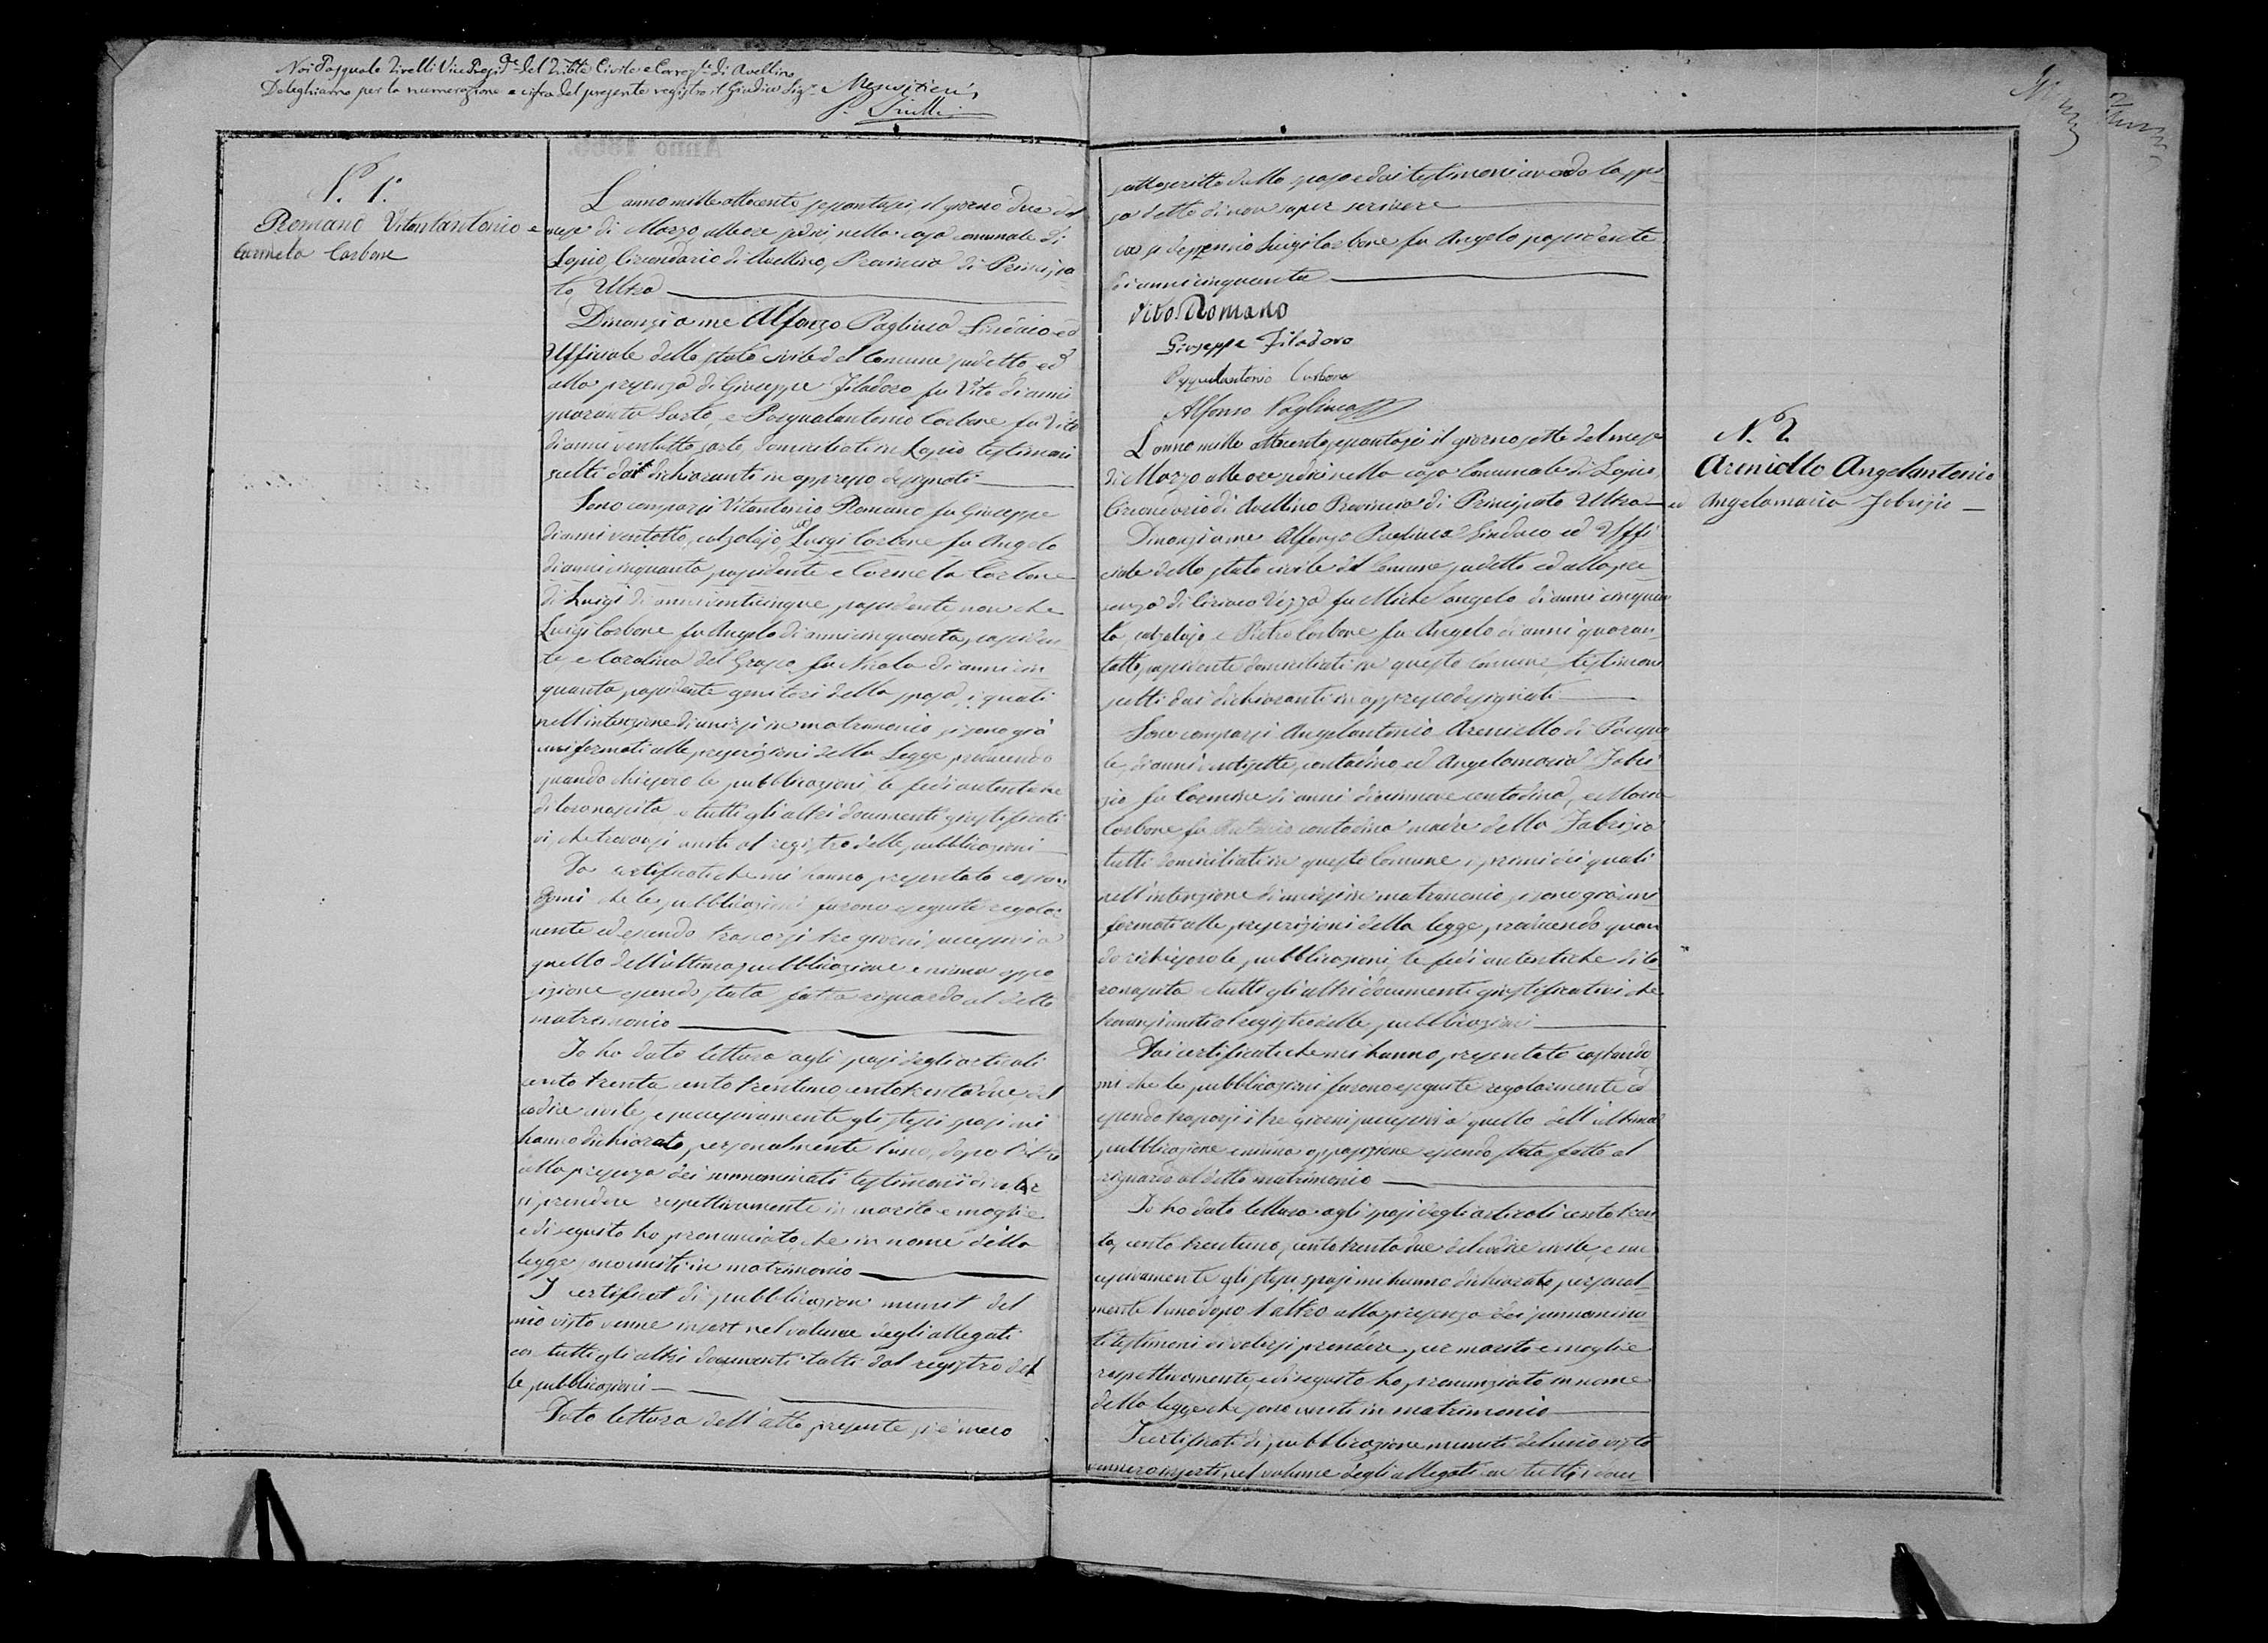 Noi Pasquale Tirelli Vice Presid.te del Trib.le Civile e Correz.le di Avellino
Deleghiamo per la numerazione e cifra del presente registro il Giudice Sig.r
P. Tirelli
N. 1.
Romano Vitantantonio e
Carmela Carbone
L'anno mille ottocento sessantasei, il giorno due del
mese di Marzo alle ore sedici nella casa comunale di
Lapio, Circondario di Avellino, Provincia di Principa
to Ultra
Dinanzi a me Alfonzo Pagliuca Sindaco ed
Ufficiale dello stato civile del Comune sudetto, ed
alla presenza di Giuseppe Filadoro fu Vito di anni
quaranta Sarto, e Pasqualantonio Carbone fu Vito
di anni ventotto sarto, domiciliati in Lapio testimoni
scelti dai dichiaranti in appresso designati
Sono comparsi Vitantonio Romano fu Giuseppe
di anni ventotto, calzolajo, Luigi Carbone fu Angelo
di anni cinquanta possidente e Carmela Carbone
di Luigi di anni venticinque, possidente non che
Luigi Carbone fu Angelo di anni cinquanta, possiden
te e Carolina del Grosso fu Nicola di anni cin
quanta possidente genitori della sposa, i quali
nell'intenzione di unirsi in matrimonio si sono già
uniformati alle prescrizioni della Legge, producendo
quando chiesero le pubblicazioni, le fedi autentiche
di loro nascita, e tutti gli altri documenti giustificati
vi, che trovansi uniti al registro delle pubblicazioni
Da' certificati che mi hanno presentato costan
domi che le pubblicazioni furono eseguite regolar
mente ed essendo trascorsi tre giorni successivi a
quello dell'ultima pubblicazione e niuna oppo
sizione essendo stata fatta riguardo al detto
matrimonio
Io ho dato lettura agli sposi degli articoli
cento trenta, cento trentuno, cento trentadue, del
codice civile, e successivamente gli stessi sposi mi
hanno dichiarato personalmente l'uno, dopo l'altro
alla presenza dei sunnominati testimonii di voler
si prendere rispettivamente in marito e moglie
e di seguito ho pronunciato, che in nome della
legge sono uniti in matrimonio
I certificat di pubblicazion munit del
mio visto venne insert nel volume degli allegati
con tutti gli altri documenti tolti dal registro del
le pubblicazioni
Data lettura dell'atto presente si è meco
sottoscritto dallo sposo e dai testimoni avendo la spo
sa detto di non saper scrivere
Luigi Carbone fu Angelo possidente
di anni cinquanta
Vito Romano
Giuseppe Filadoro
Pasqualantonio Carbone
Alfonso Pagliuca
N. 2.
Areniello Angelantonio
ed Angelamaria Fabrizio
L'anno mille ottocento sessantasei il giorno sette del mese
di Marzo alle ore sedici nella casa Comunale di Lapio,
Circondario di Avellino Provincia di Principato Ultra
Dinanzi a me Alfonzo Pagliuca Sindaco ed Uffi
ciale dello stato civile del Comune sudetto ed alla pre
senza di Ciriaco Vozzo fu Michelangelo di anni cinquan
ta, calzolajo e Pietro Carbone fu Angelo di anni quaran
totto, possidente domiciliati in questo Comune, testimoni
scelti dai dichiaranti in appresso designati
Sono comparsi Angelantonio Areniello di Pasqua
le, di anni ventisette, contadino, ed Angelamaria Fabri
zio fu Carmine di anni diciannove contadina, e Maria
Carbone fu contadina madre della Fabrizio
tutti domiciliati in questo Comune, i primi dei quali
nell'intenzione di unirsi in matrimonio si sono già uni
formati alle prescrizioni della legge, producendo quan
do richiesero le pubblicazioni, le fedi autentiche di lo
ro nascita e tutti gli altri documenti giustificativi che
trovansi uniti al registro delle pubblicazioni
Dai certificati che mi hanno presentato costando
mi che le pubblicazioni furono eseguite regolarmente ed
essendo trascorsi i tre giorni successivi a quello dell'ultima
pubblicazione e niuna opposizione essendo stata fatta al
riguardo al detto matrimonio
Io ho dato lettura agli sposi degli articoli cento tren
ta, cento trentuno, cento trentadue del codice civile, e suc
cessivamente gli stessi sposi mi hanno dichiarato personal
mente l'uno dopo l'altro alla presenza dei sunnomina
ti testimoni di volersi prendere per marito e moglie
rispettivamente, e di seguito ho pronunziato in nome
della legge che sono uniti in matrimonio
I certificati di pubblicazione muniti del mio visto
vennero inserti nel volume degli allegati con tutti i docu